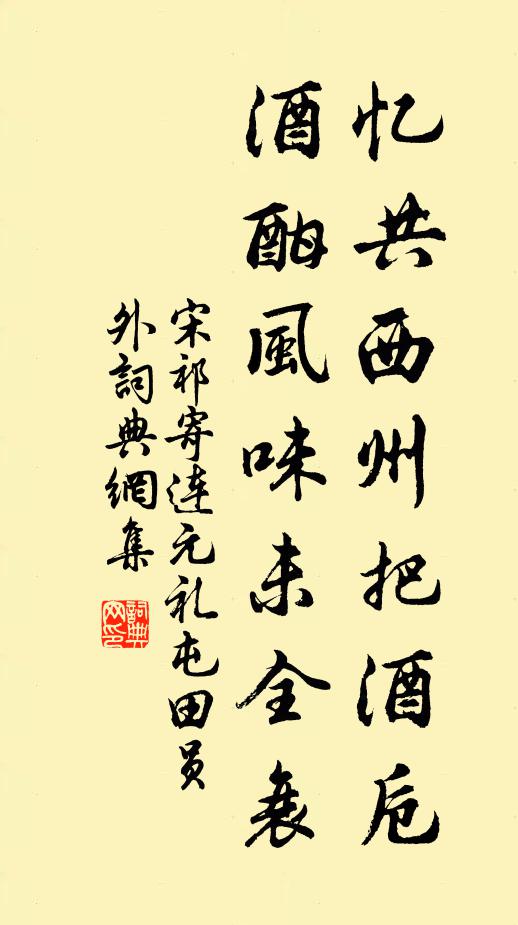 忆共西州把酒卮
酒酣風味未全衰
宋祁寄连元礼屯田员
外詞典網集
詞典网印